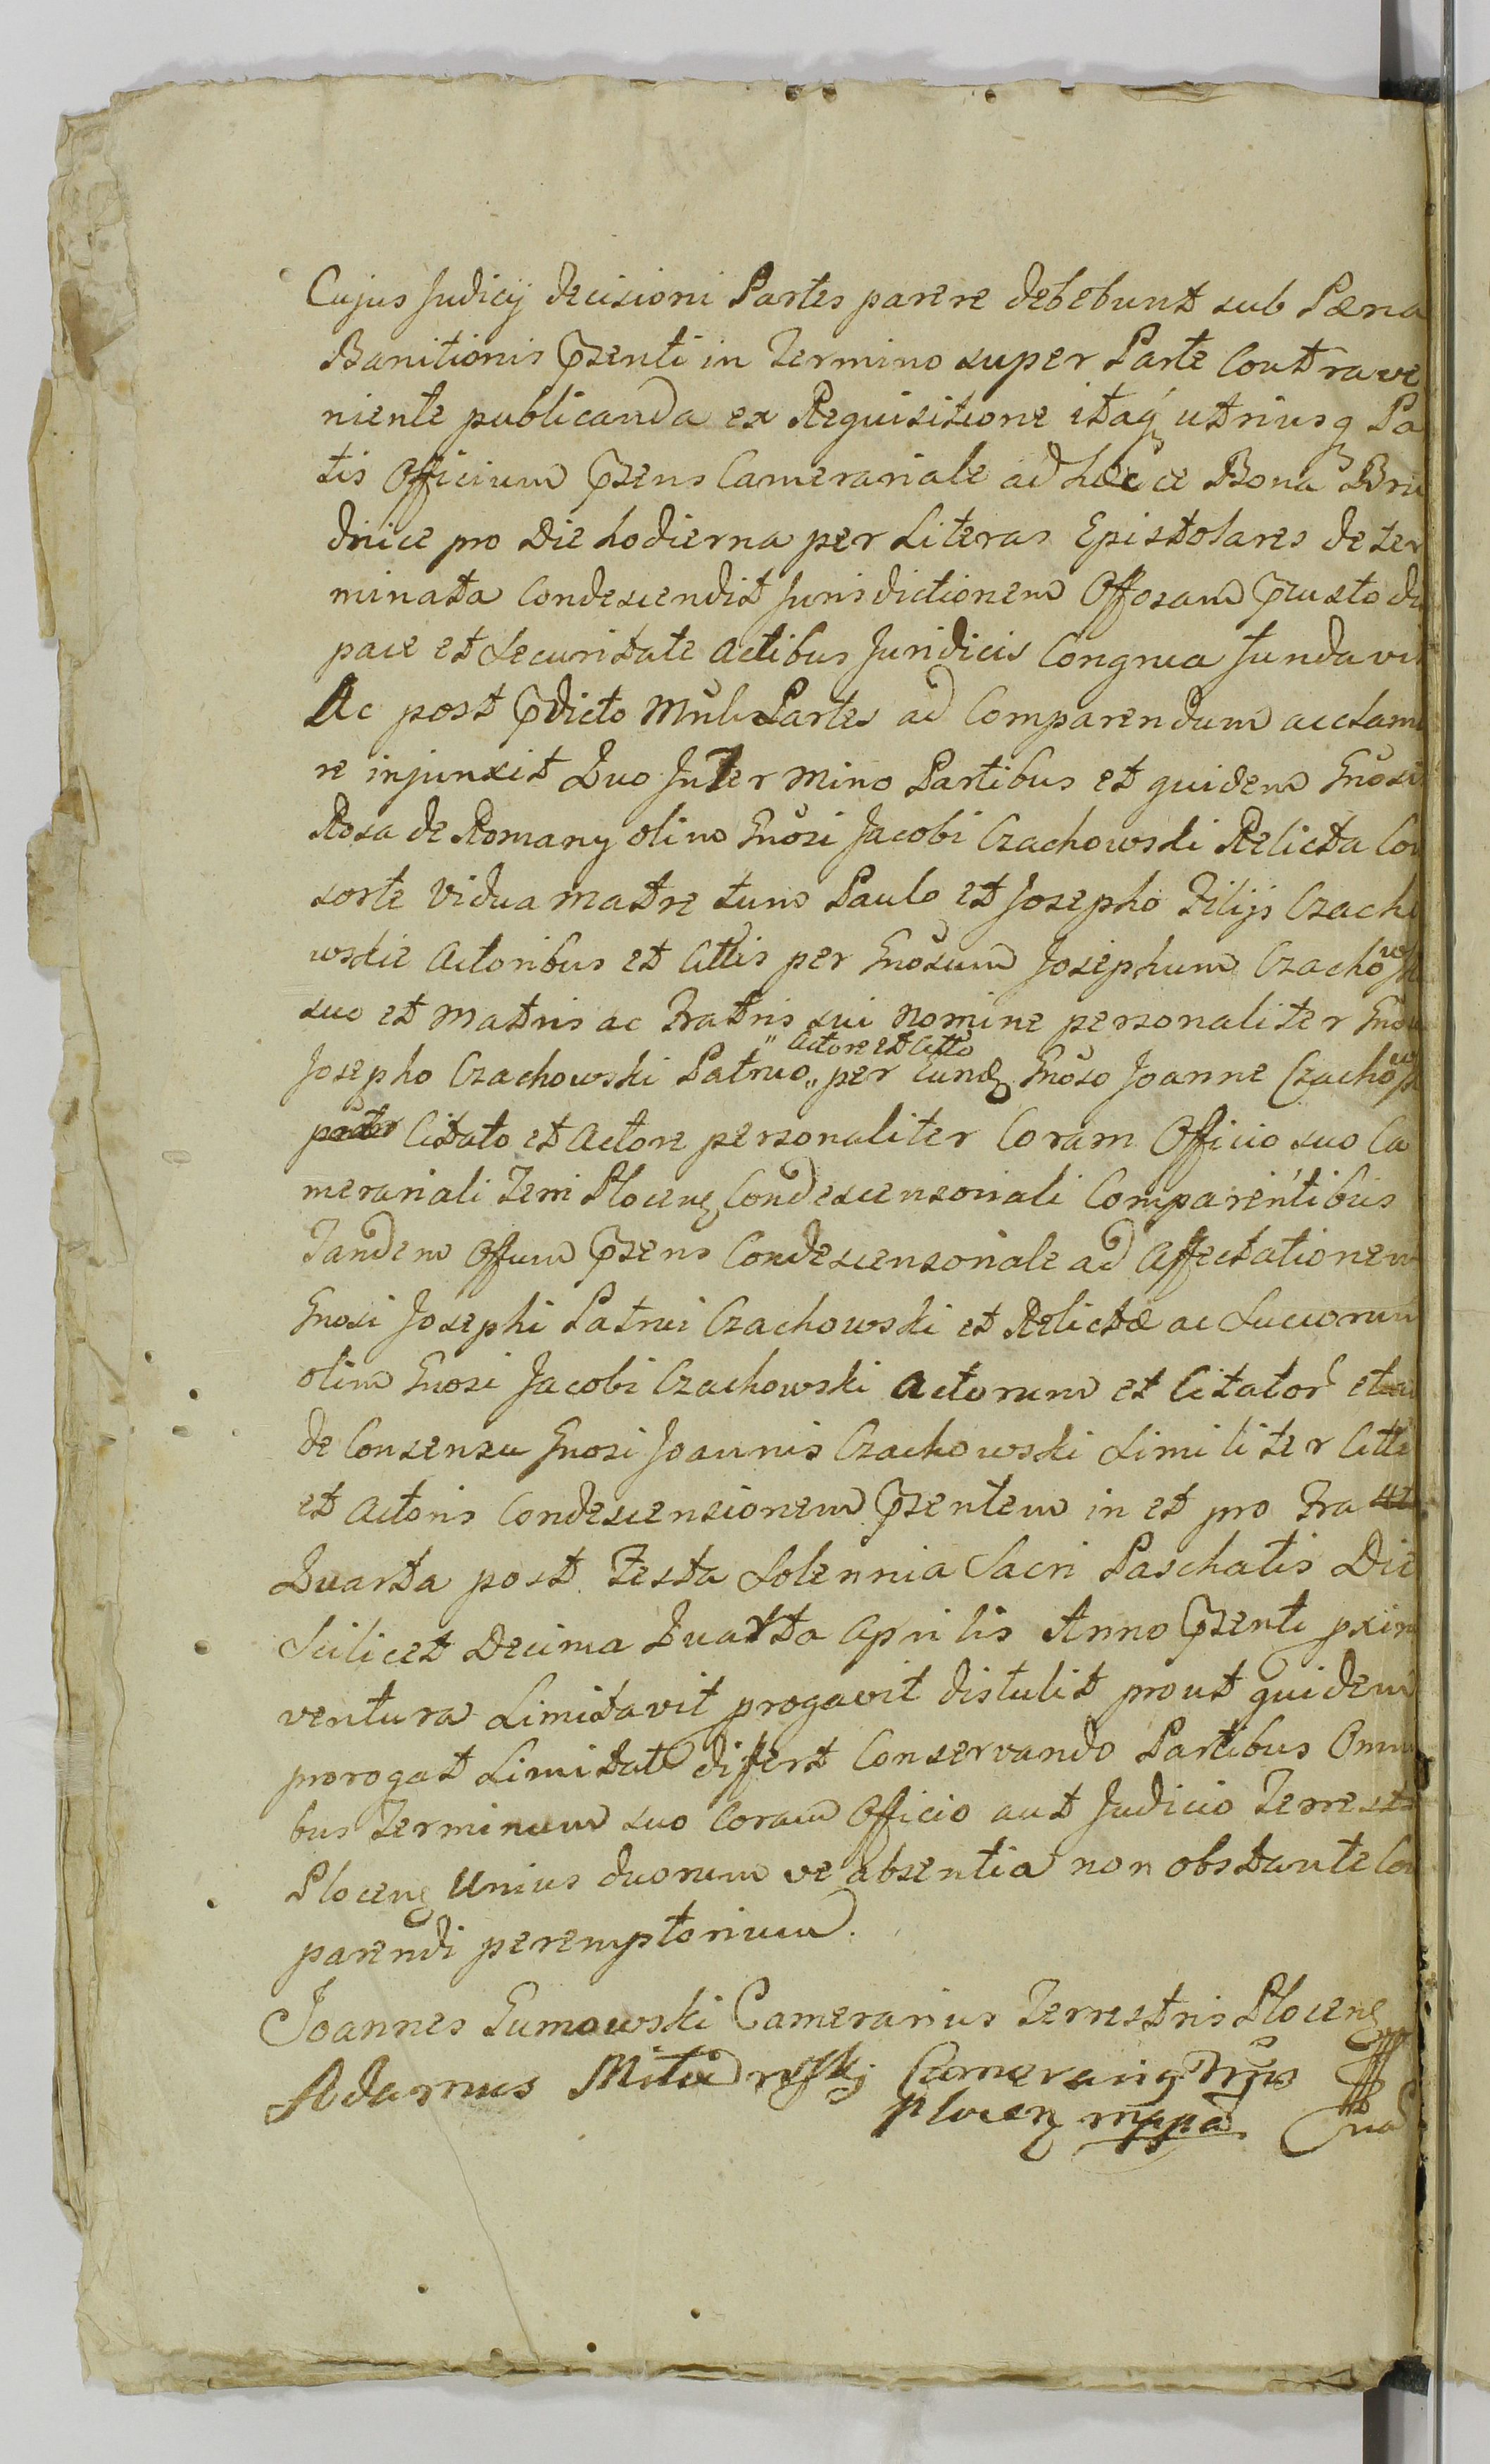 Cujus Judicij decisioni Partes parere debebunt sub Pæna
Banitionis Pzenti in Termino super Parte Contrave
niente publicanda ex Requisitione itaq utriusq Pa
tis Officium Pzens Camerariale ad hæcce Bona Bru
dnice pro Die hodierna per Literas Epistolares deter
minata Condescendit Jurisdictionem Offosam Pmisto du
pace et Securitate Actibus Juridicis Congrua fundavit
Ac post Pdicto Mnli Partes ad Comparendum acclama
re injunxit Quo In Termino Partibus et quidem Gnosi
Rosa de Romany olim Gnosi Jacobi Czachowski Relicta Con
sorte Vidua Matre tum Paulo et Josepho Filijs Czacho
wskie Actoribus et Cittis per Gnosum Josephum Czachowsk
suo et Matris ac Fratris sui Nomine personaliter Gnoso
" Actore et Citto
Josepho Czachowski Patruo „ per Eundz Gnoso Joanne Czachowsk
Citato et Actore personaliter Coram Officio suo Ca
merariali Terri Plocenz Condescensoriali Comparentibus
Tandem Offum Pzens Condescensoriale ad Affectationem
Gnosi Josephi Patrui Czachowski et Relictæ ac Succorum
olim Gnosi Jacobi Czachowski Actorum et Citator et
de Consensu Gnosi Joannis Czachowski Similiter Citti
et Actoris Condescensionem Pzentem in et pro Fra
Quarta post Festa Solennia Sacri Paschatis Die
Scilicet Decima Quarta Aprilis Anno Pzenti pxim
ventura Limitavit progavit distulit prout quidem
prorogat Limitat difert Conservando Partibus Omni
bus Terminum suo Coram Officio aut Judicio Terrest
Plocenz Unius duorum ve absentia non obstante Com
parendi peremptorium.
Joannes Gumowski Camerarius Terrestris Plocenz
Adamus Camerarig Trris
Plocenz mppa